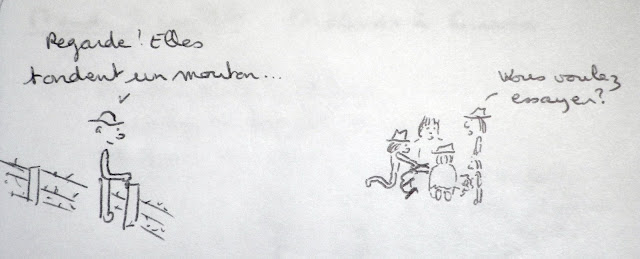 Regarde! Elles
tondent un mouton...
Vous voulez
essayer?